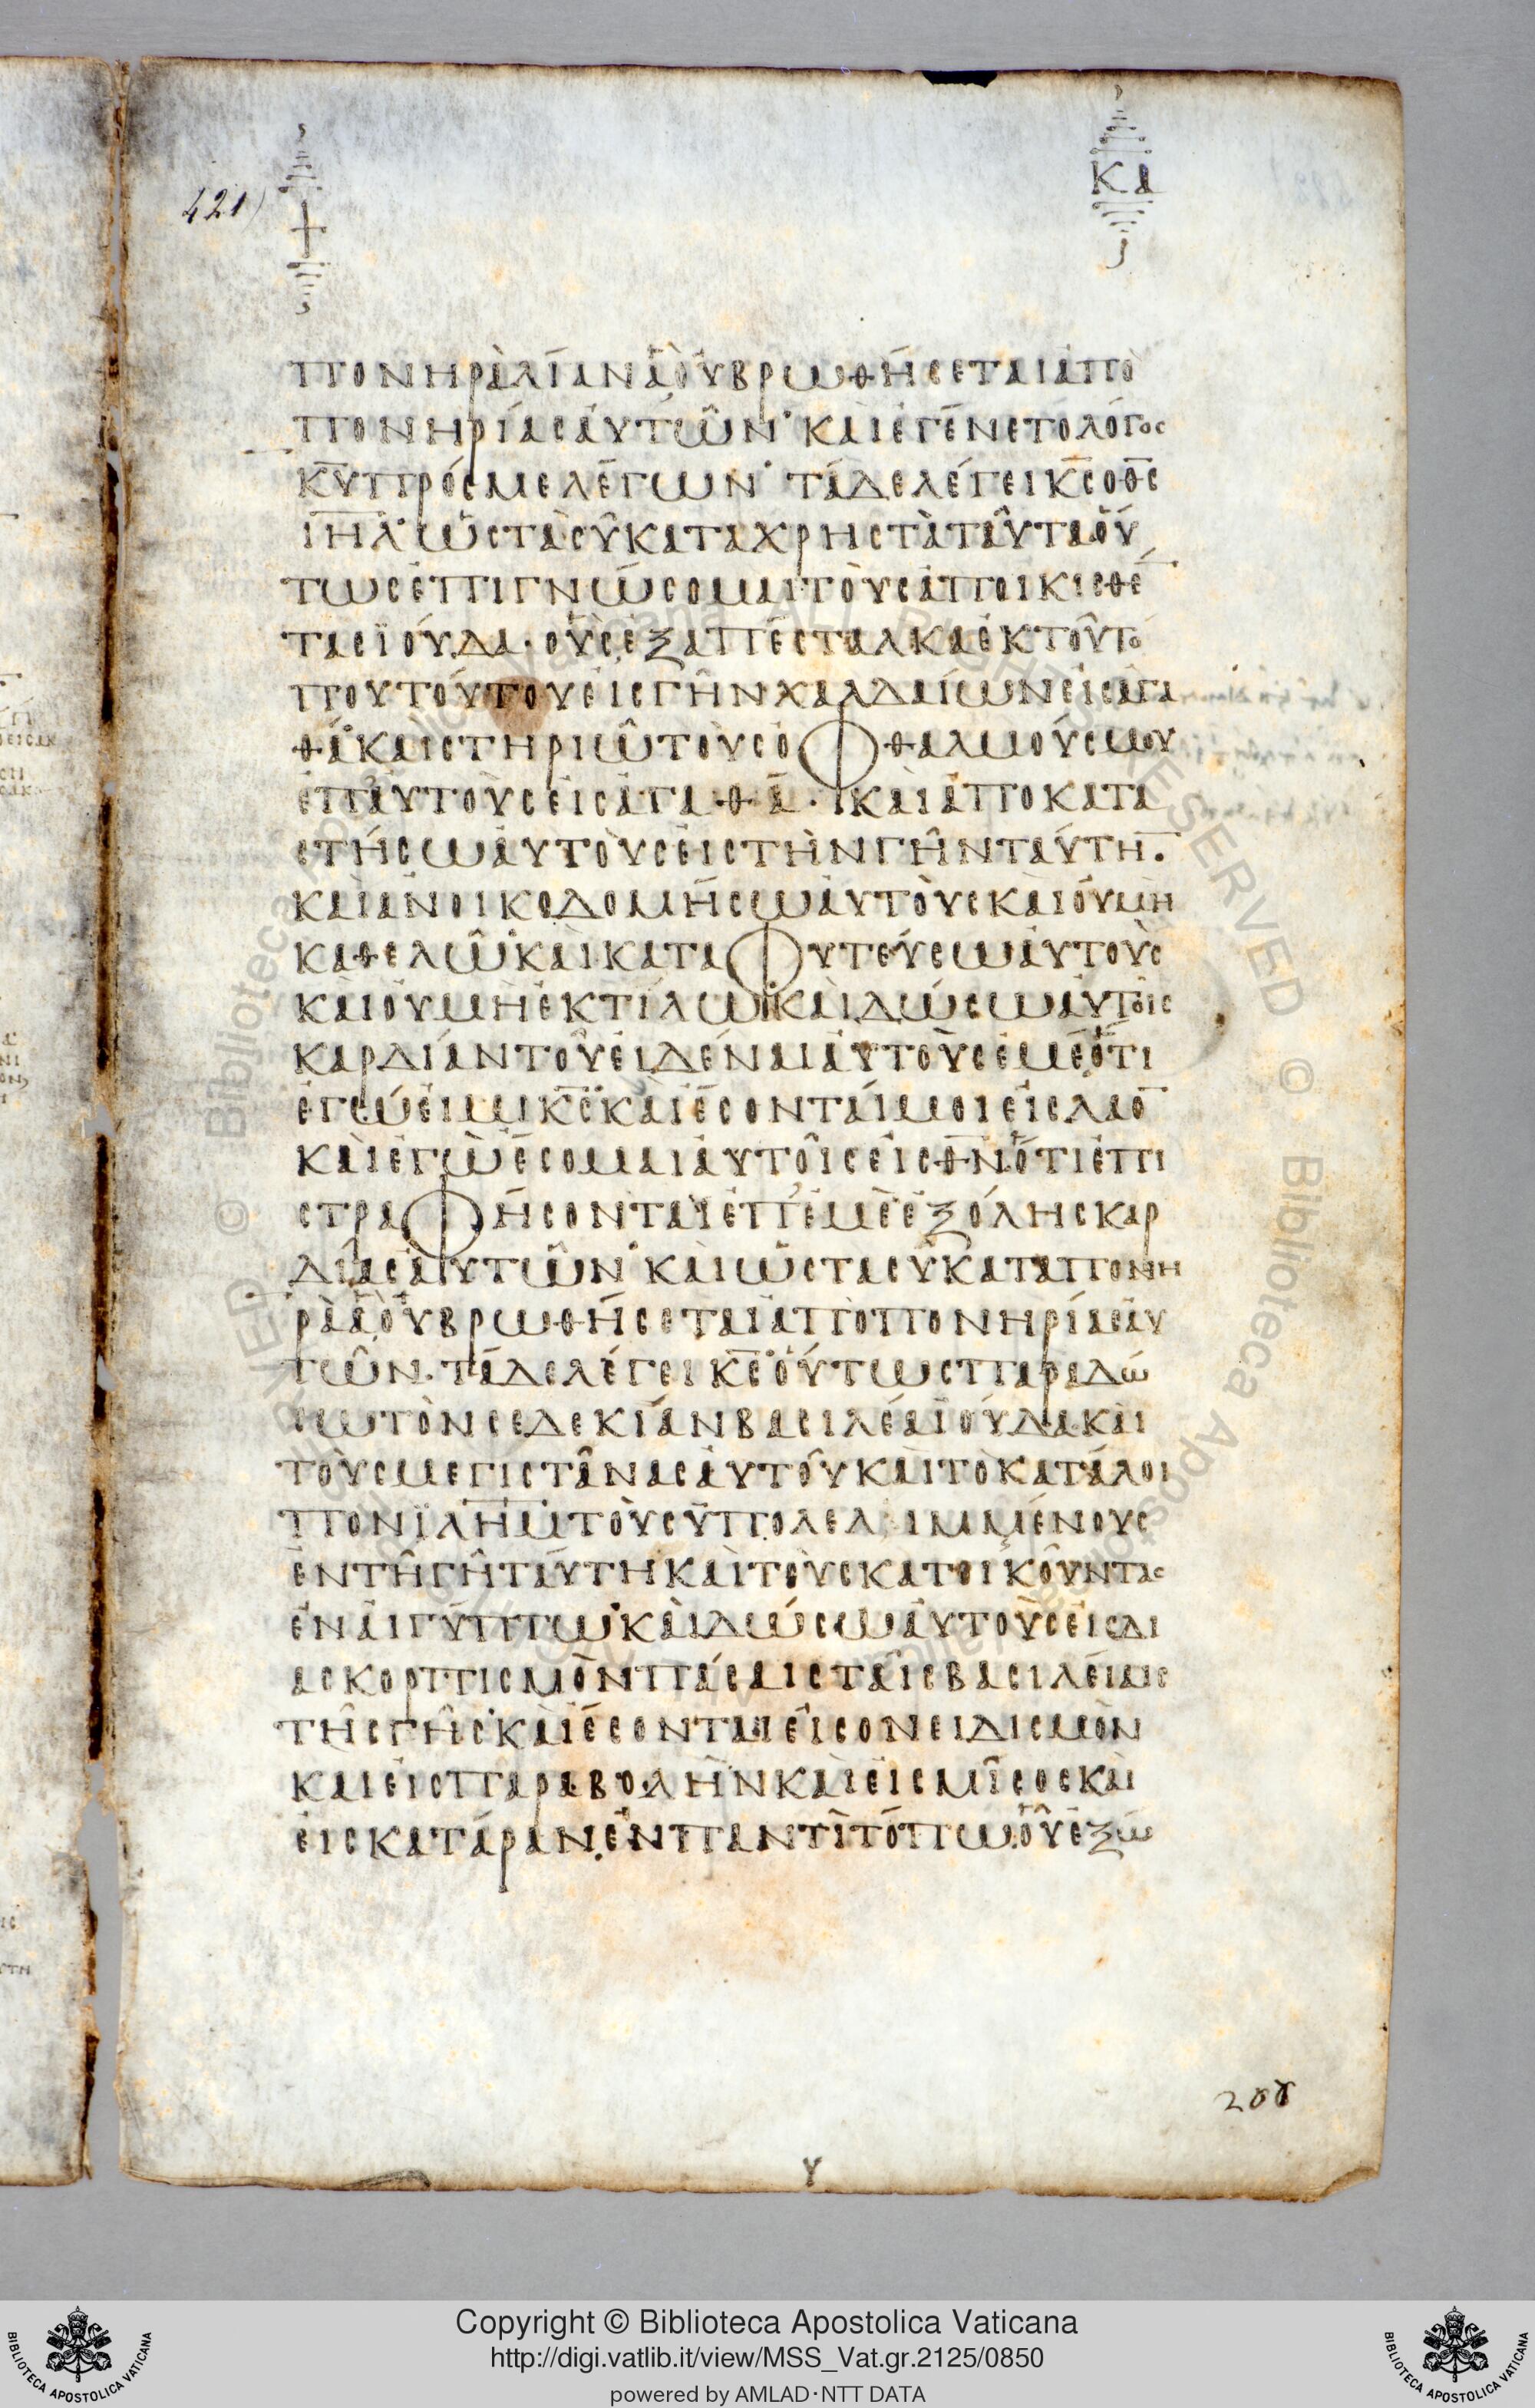 421)
+
κα
πονηρὰ λίαν ἃ οὐ βρωθήσεται ἀπὸ
πονηρίας αὐτῶν· καὶ ἐγένετο λόγος
κ̅υ̅ πρός με λέγων· τάδε λέγει κ̅ς̅ ο θ̅ς̅
ι̅η̅λ̅· ὡς τὰ σῦκα τα χρηστὰ ταῦτα οὕ
τως ἐπιγνώσομαι τοὺς ἀποικισθέ̅
τας ϊούδα· οὓς ἐξαπέσταλκα ἐκ τοῦ το
που τούτου εἰς γῆν χαλδαίων εἰς ἀγα
θά· καὶ στηριῶ τοὺς ὀφθαλμούς μου
ἐπ αὐτοὺς εἰς ἀγαθά· καὶ ἀποκατα
στήσω αὐτοὺς εἰς τὴν γῆν ταύτη̅·
καὶ ἀνοικοδομήσω αὐτοὺς καὶ οὐ μὴ
καθελῶ· καὶ καταφυτεύσω αὐτοὺς
καὶ οὐ μὴ ἐκτίλω· καὶ δώσω αὐτοῖς
καρδίαν τοῦ εἰδέναι αὐτοὺς ἐμέ· ὅτι
ἐγώ εἰμι κ̅ς̅· καὶ ἔσονταί μοι εἰς λαο̅
καὶ ἐγὼ ἔσομαι αὐτοῖς εἰς θ̅ν̅· ὅτι ἐπι
στραφήσονται ἐπ' ἐμὲ ἐξ ὅλης καρ
δίας αὐτῶν· καὶ ὡς τα σῦκα τα πονη
ρὰ ἃ οὐ βρωθήσεται ἀπὸ πονηρίας αὐ
τῶν· τάδε λέγει κ̅ς̅· οὕτως παραδώ
σω τὸν σεδεκίαν βασιλέα ϊούδα· καὶ
τοὺς μεγιστᾶνας αὐτοῦ καὶ τὸ κατάλοι
πον ϊ̅λ̅η̅μ̅ τοὺς ὑπολελιμμένους
ἐν τῇ γῇ ταύτη· καὶ τοὺς κατοικοῦντας
ἐν αἰγύπτω· καὶ δώσω αὐτοὺς εἰς δι
ασκορπισμὸν πάσαις ταῖς βασιλείαις
τῆς γῆς· καὶ ἔσονται εἰς ονειδισμὸν
καὶ εἰς παραβολὴν καὶ εἰς μῖσος καὶ
εἰς κατάραν· ἐν παντὶ τόπω οὗ ἐξώ
Υ
Copyright © Biblioteca Apostolica Vaticana
http://digi.vatlib.it/view/MSS_Vat.gr.2125/0850
powered by AMLAD·NTT DATA
BIBLIOTECA APOSTOLICA VATICANA
BIBLIOTECA APOSTOLICA VATICANA